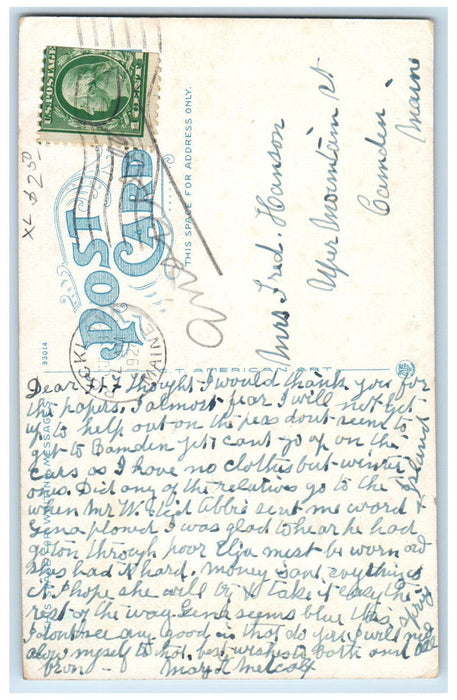 U.S. POSTAGE
1 CENT 1
XL $2.50
POST CARD
THIS SPACE FOR ADDRESS ONLY.
93014
Mrs Fred. Hanson
Uper Mountain St
Camden
Maine
THIS SPACE FOR WRITING MESSAGES
Dear thought I would thank you for
the papers. I almost fear I will not get
up to help out on the peas dont seem to
get to Camden yet I cant go up on the
cars as I have no clothes but winter
ones. Did any of the relatives go to the Island
when Mr W. died Abbie sent me word &
Gena phoned I was glad to hear he had
got on through poor Elja must be worn out
shes had it hard. money isnt everything
I hope she will try & take it easy the
rest of the way Gena seems blue this spring
I dont see any good in that do you I will not
alow myself to that. best wishes to both and all
Mary L Metcalf